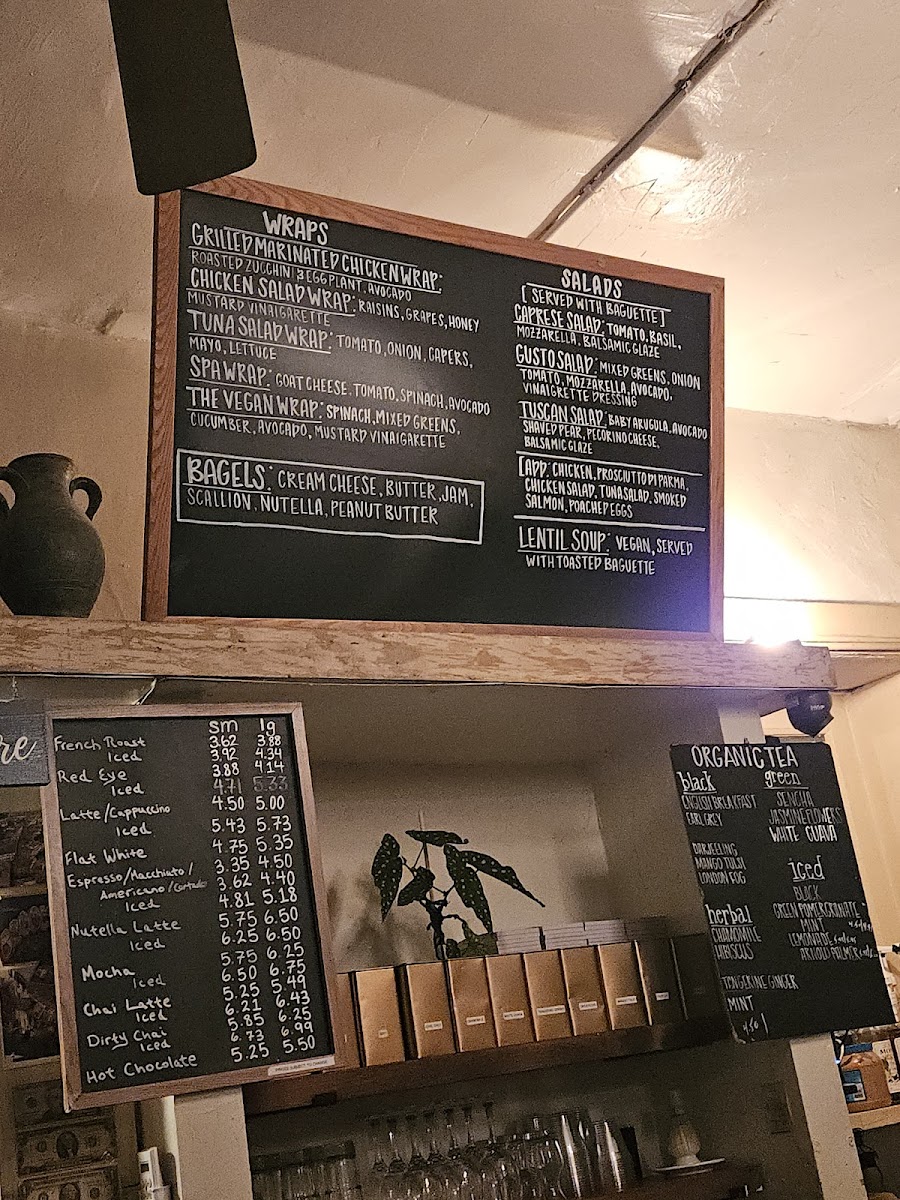 WRAPS
GRILLED MARINATED CHICKEN WRAP:
ROASTED ZUCCHINI & EGGPLANT, AVOCADO
CHICKEN SALAD WRAP: RAISINS, GRAPES, HONEY
MUSTARD VINAIGARETTE
TUNA SALAD WRAP: TOMATO, ONION, CAPERS,
MAYO, LETTUCE
SPA WRAP: GOAT CHEESE, TOMATO, SPINACH, AVOCADO
THE VEGAN WRAP: SPINACH, MIXED GREENS,
CUCUMBER, AVOCADO, MUSTARD VINAIGARETTE
BAGELS: CREAM CHEESE, BUTTER, JAM,
SCALLION, NUTELLA, PEANUT BUTTER
SALADS
[SERVED WITH BAGUETTE]
CAPRESE SALAD: TOMATO, BASIL,
MOZZARELLA, BALSAMIC GLAZE
GUSTO SALAD: MIXED GREENS, ONION
TOMATO, MOZZARELLA, AVOCADO,
VINAIGRETTE DRESSING
TUSCAN SALAD: BABY ARUGULA, AVOCADO
SHAVED PEAR, PECORINO CHEESE,
BALSAMIC GLAZE
[ADD: CHICKEN, PROSCIUTTO DI PARMA,
CHICKEN SALAD, TUNA SALAD, SMOKED
SALMON, POACHED EGGS
LENTIL SOUP: VEGAN, SERVED
WITH TOASTED BAGUETTE
re
sm lg
French Roast 3.62 3.88
Iced 3.92 4.34
Red Eye 3.88 4.14
Iced 4.71 5.33
Latte/Cappuccino 4.50 5.00
Iced 5.43 5.73
Flat White 4.75 5.35
Espresso/Macchiato/ 3.35 4.50
Americano/Cortado 3.62 4.40
Iced 4.81 5.18
Nutella Latte 5.75 6.50
Iced 6.25 6.50
Mocha 5.75 6.25
Iced 6.50 6.75
Chai Latte 5.25 5.49
Iced 6.21 6.43
Dirty Chai 5.85 6.25
Iced 6.73 6.99
Hot Chocolate 5.25 5.50
PRICES SUBJECT TO CHANGE
ORGANIC TEA
black
ENGLISH BREAKFAST
EARL GREY
DARJEELING
MANGO TULSI
LONDON FOG
herbal
CHAMOMILE
HIBISCUS
TANGERINE GINGER
MINT
4.50
green
SENCHA
JASMINE FLOWERS
WHITE GUAVA
iced
BLACK
GREEN POMEGRANATE
MINT
LEMONADE
ARNOLD PALMER